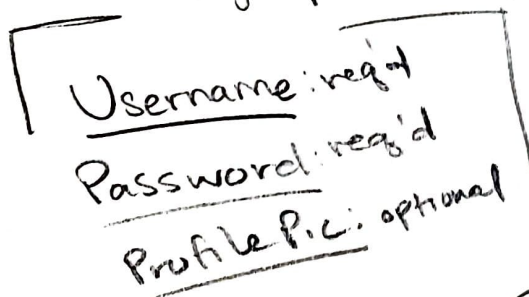 Username: req'd
Password: req'd
Profile Pic: optional